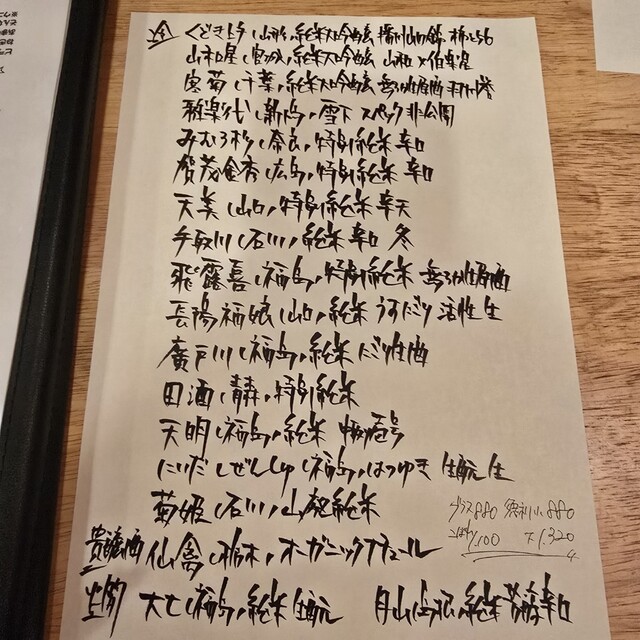 冷 くどき上手(山形)純米大吟醸 播州山田錦
山和 星(宮城)純米大吟醸 山和×伯楽星
寒菊(千葉)純米大吟醸 無ろか生原酒
雅楽代(新潟)雪下 スペック非公開
みむろ杉(奈良)特別純米 辛口
賀茂金秀(広島)特別純米 辛口
天美(山口)特別純米 辛天
手取川(石川)純米 辛口 冬
飛露喜(福島)特別純米 無ろか生原酒
長陽福娘(山口)純米 うすにごり 活性 生
廣戸川(福島)純米 にごり生酒
田酒(青森)特別純米
天明(福島)純米 中取壱号
にいだしぜんしゅ(福島)はつゆき 生酛 生
菊姫(石川)山廃純米
グラス880 徳利小880
1100 大1,320
貴醸酒 仙禽(栃木)オーガニックナチュール
大七(福島)純米生酛 月山(島根)純米 芳醇辛口